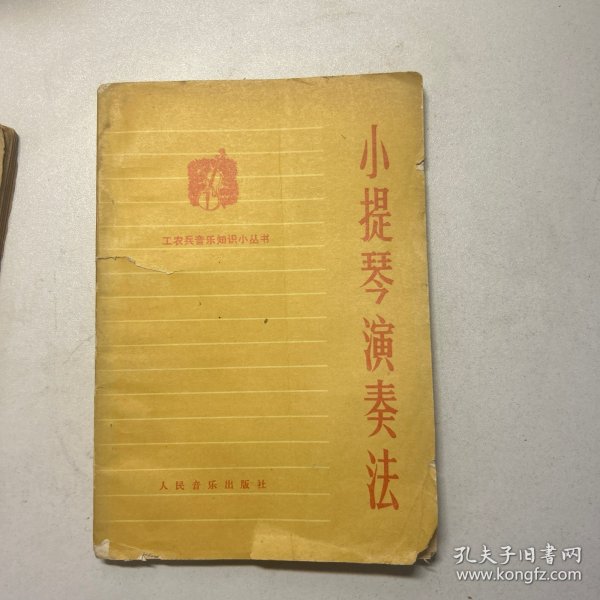 小提琴演奏法
工农兵音乐知识小丛书
人民音乐出版社
孔夫子旧书网
www.kongfz.com